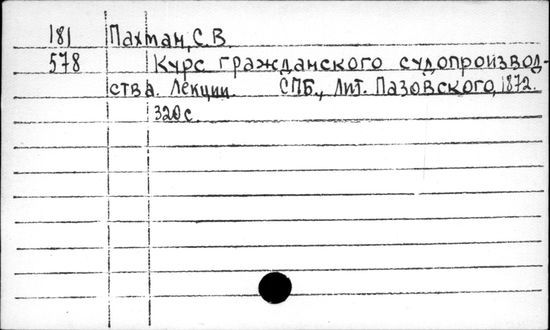 181 Пахман, С.В.
578 Курс гражданского судопроизвод-
ства. Лекции. СПБ., Лит. Пазовского, 1872.
320 с.